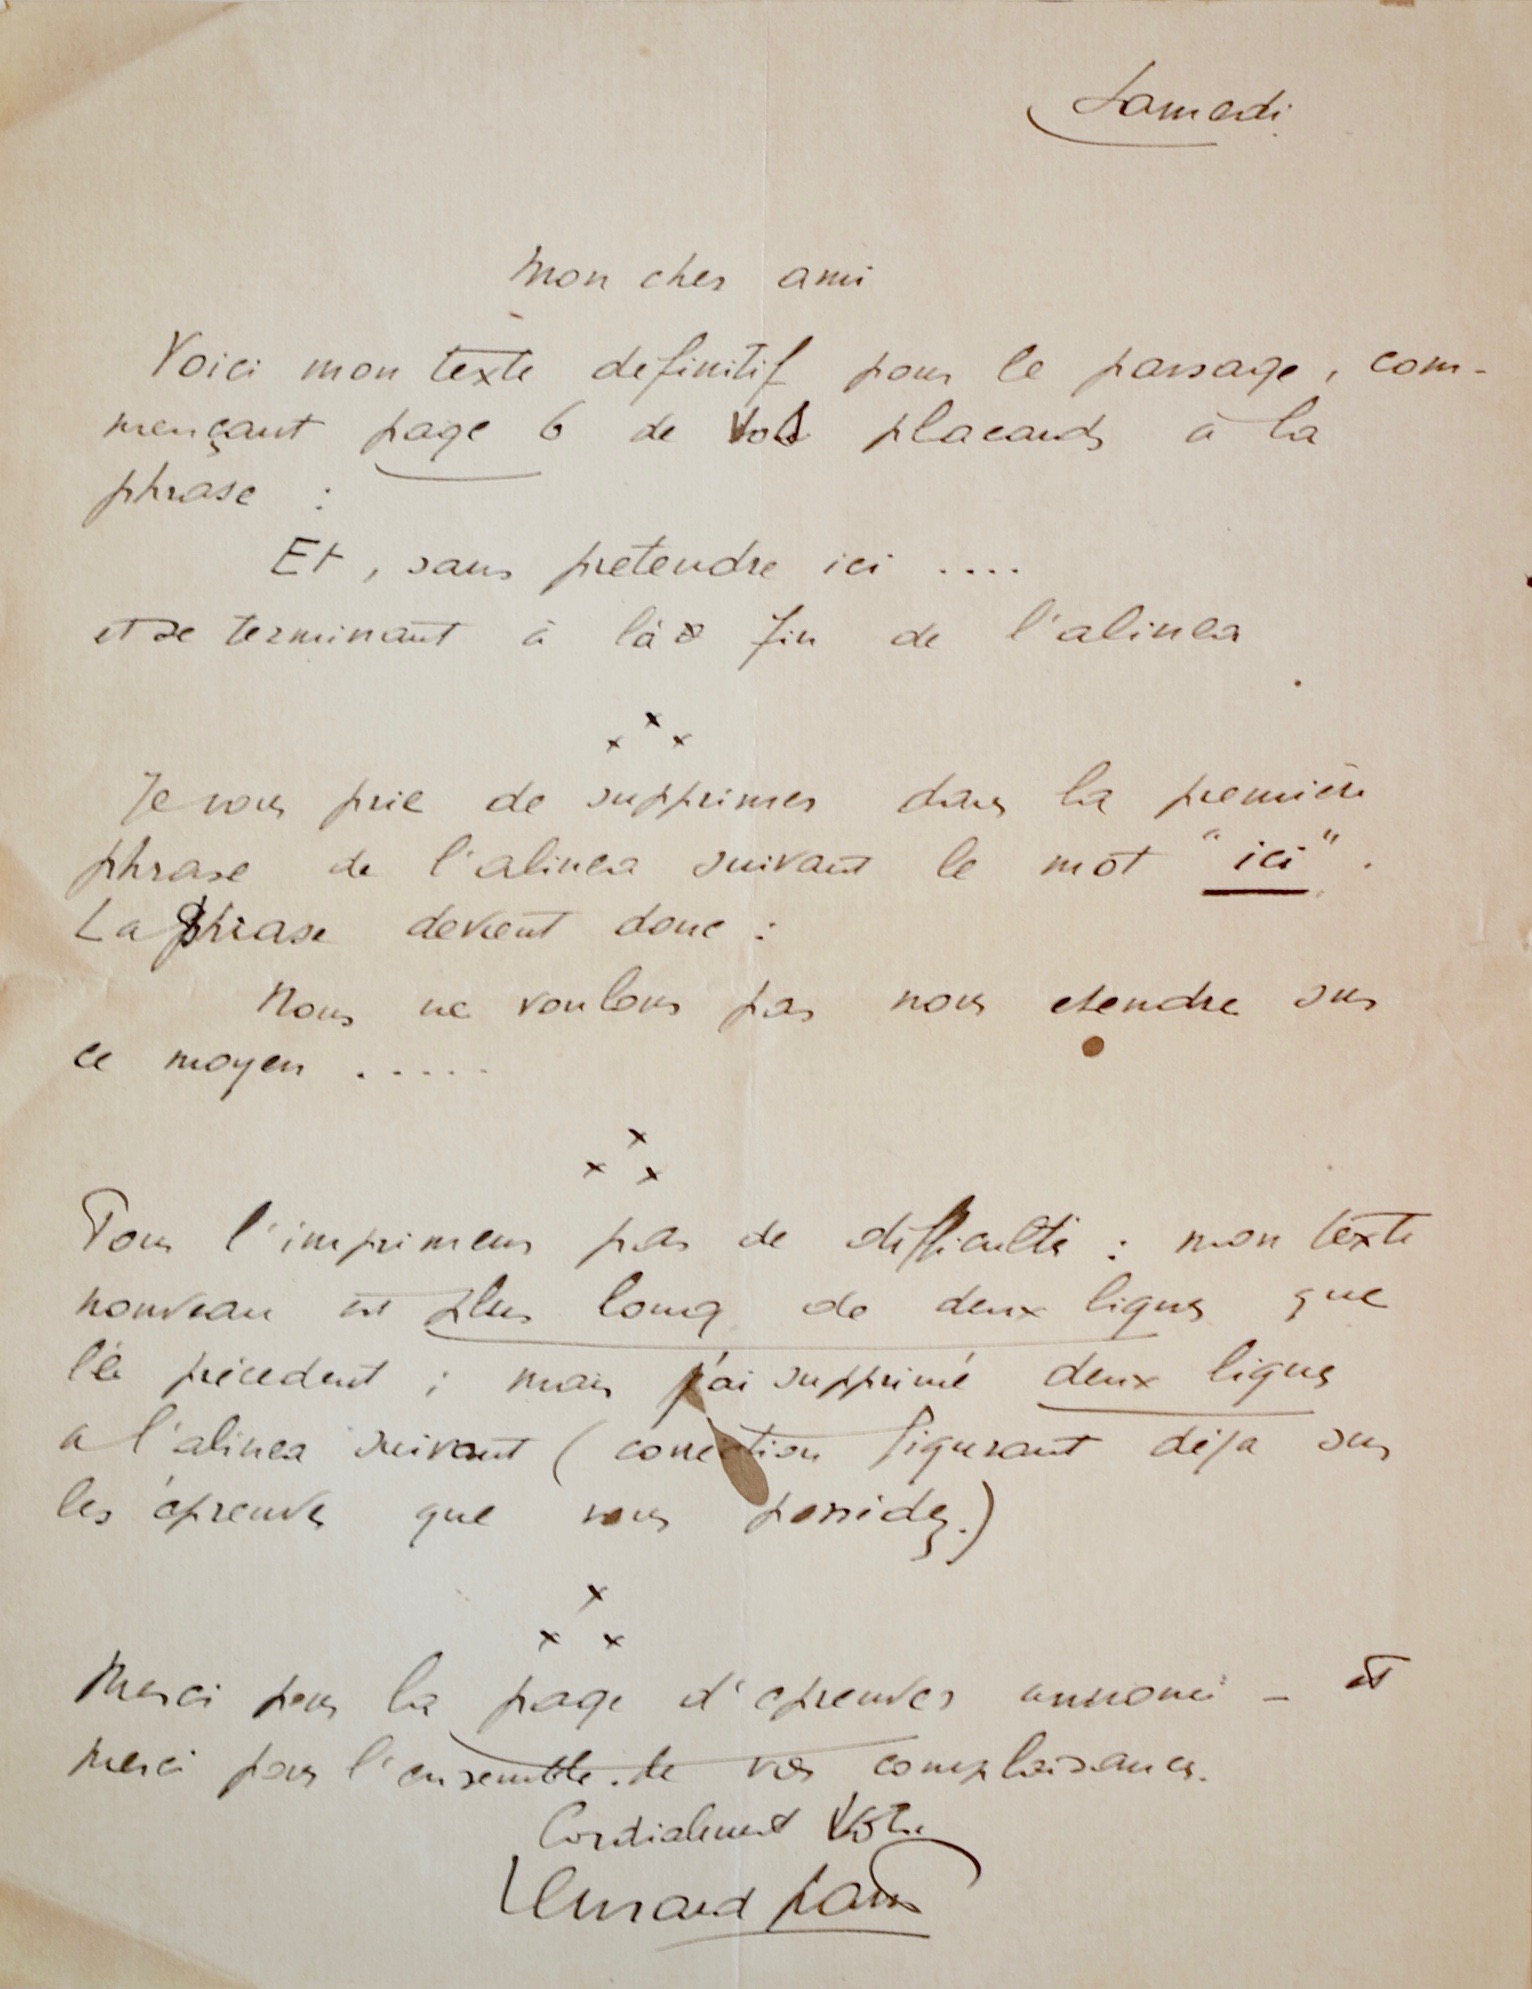 Samedi
Mon cher ami
Voici mon texte definitif pour le passage, com-
mençant page 6 de vos placards à la
phrase :
Et, sans pretendre ici ....
et se terminant à la fin de l'alinea
x
x x
Je vous prie de supprimer dans la première
phrase de l'alinea suivant le mot "ici".
La phrase devient donc :
Nous ne voulons pas nous etendre sur
ce moyen .....
x
x x
Pour l'imprimeur pas de difficulté : mon texte
nouveau est plus long de deux lignes que
le précedent ; mais j'ai supprimé deux lignes
a l'alinea suivant (correction figurant déja sur
les épreuves que vous possidez.)
x
x x
Merci pour la page d'epreuves annoncé - et
merci pour l'ensemble de vos complaisances.
Cordialement Votre